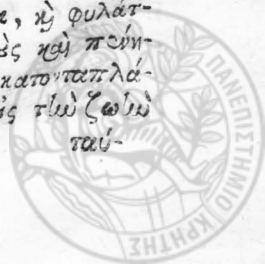 α, καὶ φυλάτ-
ὲς καὶ πενη-
κατονταπλά-
ἰς τὴν ζωὴν
ταύ-
ΠΑΝΕΠΙΣΤΗΜΙΟ ΚΡΗΤΗΣ